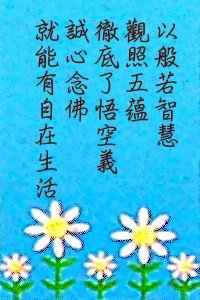 以般若智慧
觀照五蘊
徹底了悟空義
誠心念佛
就能有自在生活